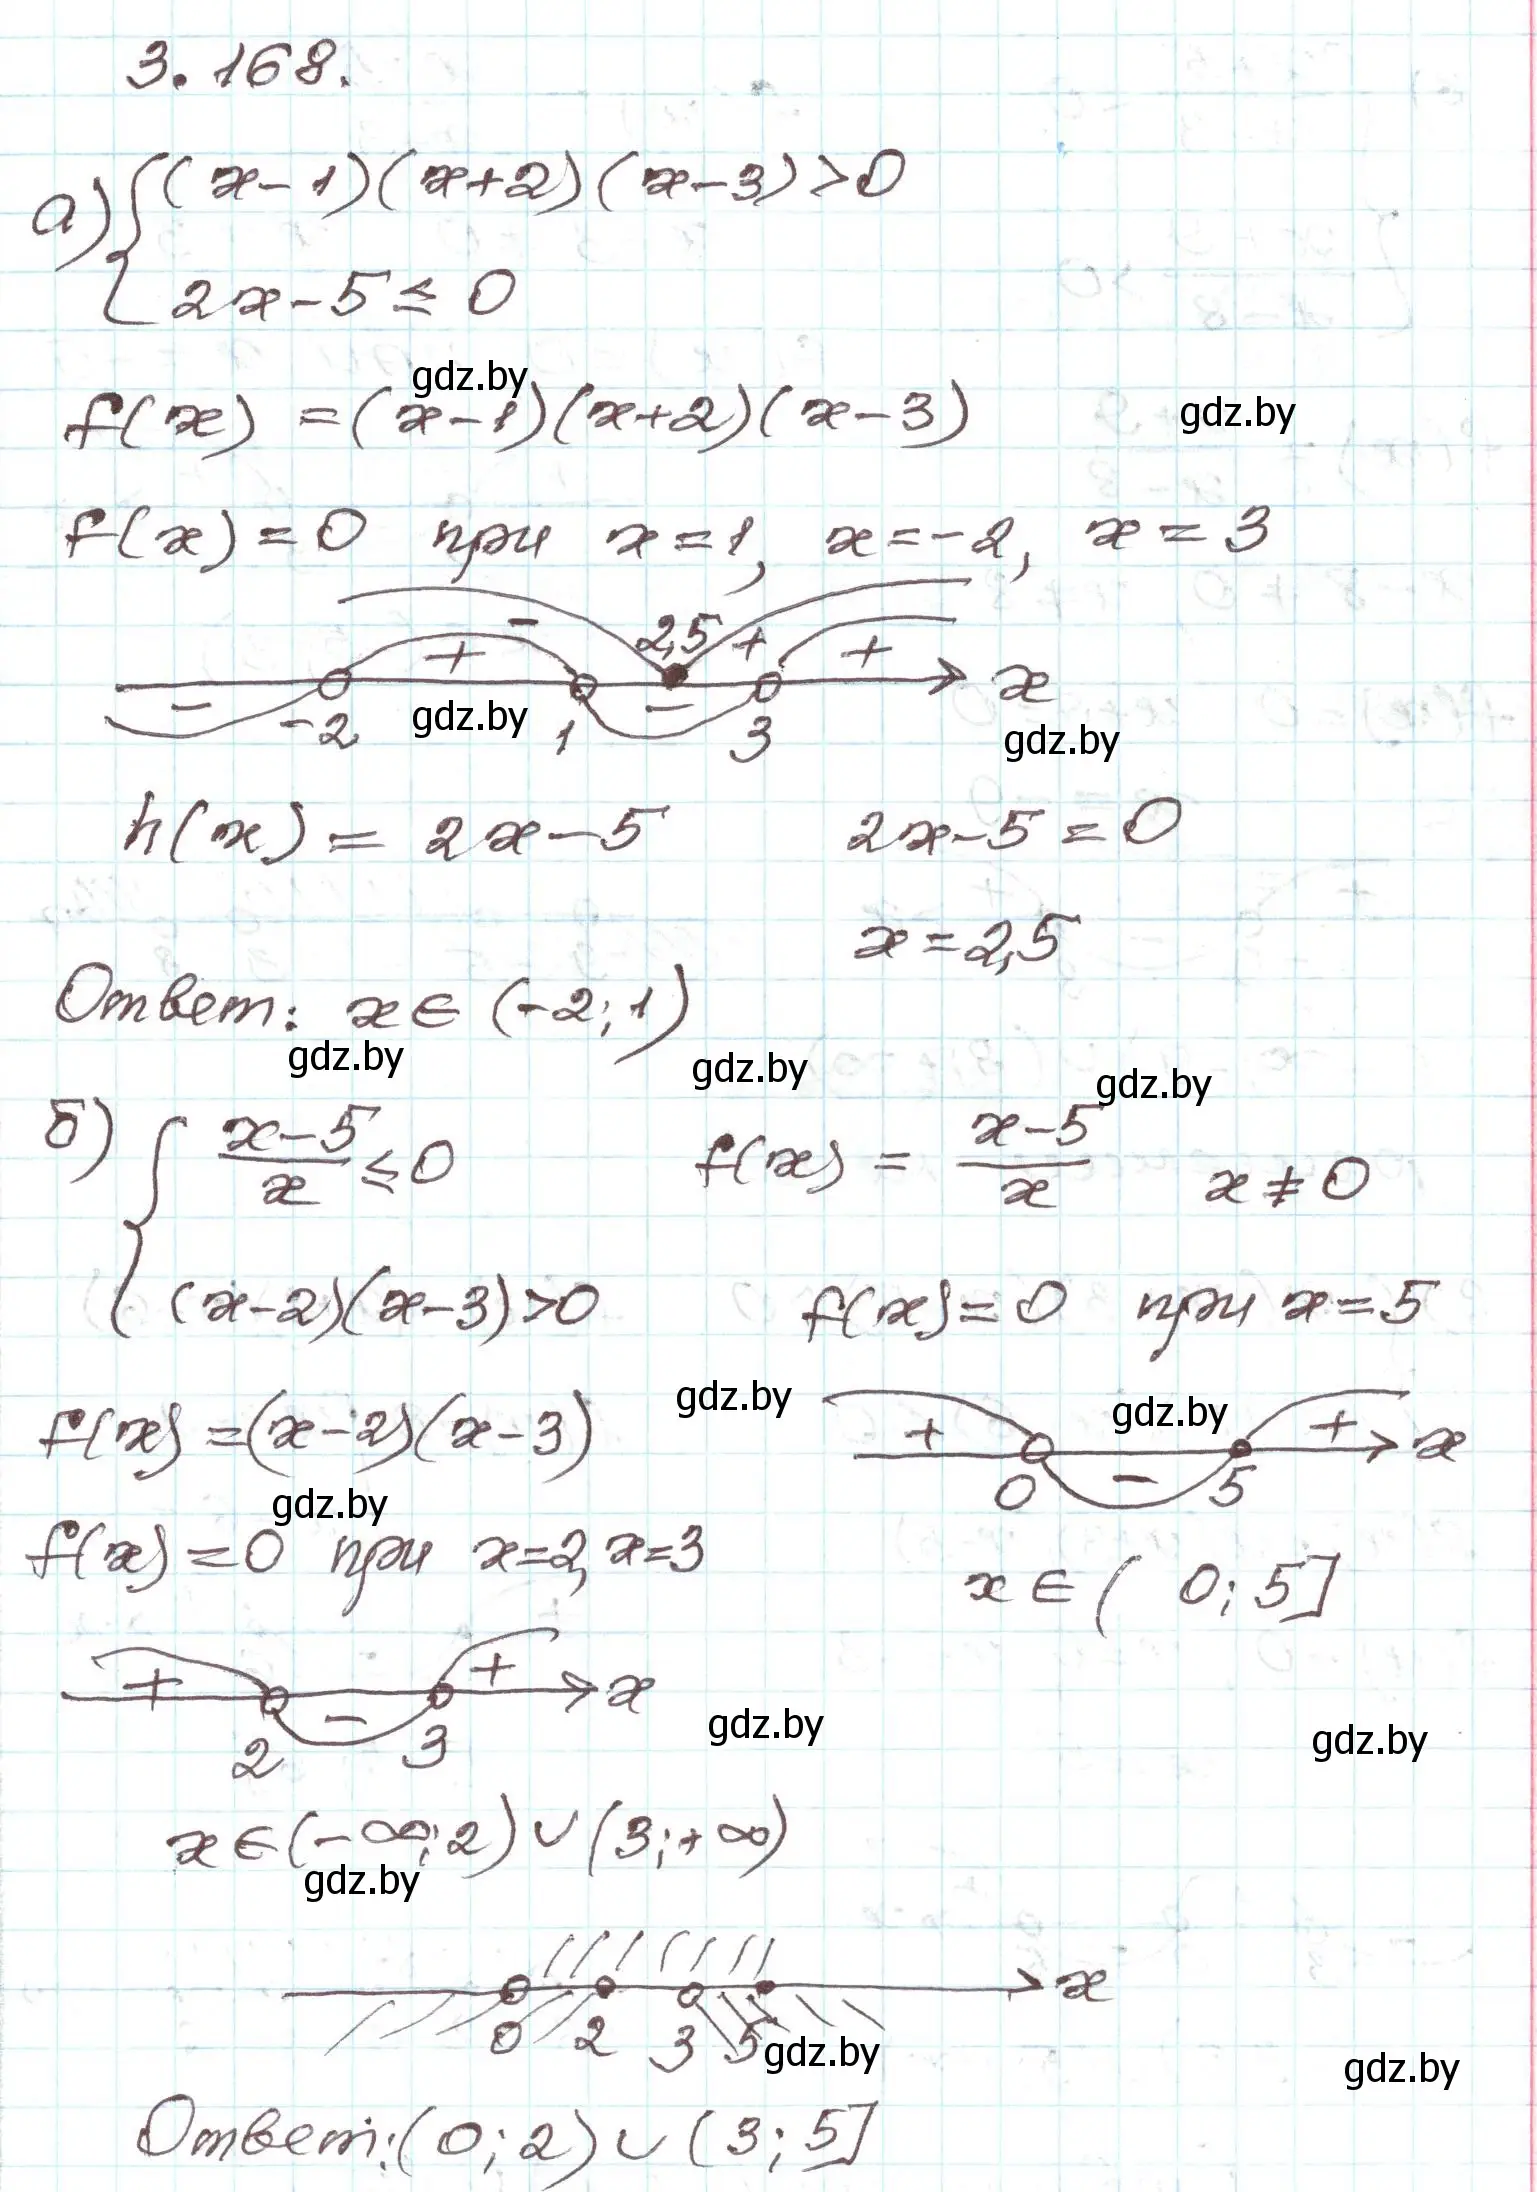 3.168.
а) { (x-1)(x+2)(x-3)>0
2x-5≤0
gdz.by
f(x) =(x-1)(x+2)(x-3)
gdz.by
f(x)=0 при x=1, x=-2, x=3
- 2,5 +
+ +
- -2 gdz.by 1 - 3 x
gdz.by
h(x)= 2x-5 2x-5=0
x=2,5
Ответ: x∈ (-2;1)
gdz.by gdz.by gdz.by
б) { x-5/x ≤0 f(x) = x-5/x x≠0
(x-2)(x-3)>0 f(x)=0 при x=5
gdz.by gdz.by
f(x)=(x-2)(x-3) + 0 - 5 + x
gdz.by
f(x)=0 при x=2, x=3
x∈( 0; 5]
+ 2 - 3 + x
gdz.by gdz.by
x∈(-∞;2)∪(3;+∞)
gdz.by
0 2 3 5 x
gdz.by gdz.by
Ответ:(0;2)∪(3;5]